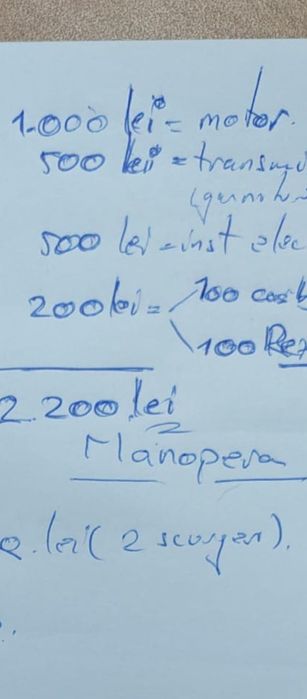 1.000 lei = motor.
500 lei = transm
500 lei = inst elec
200 lei = 100
100 Rez
2.200 lei
Manopera
lei ( 2 scurgeri ).